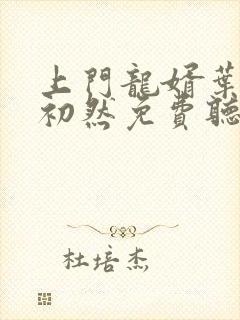 上門龍婿葉
初然免費聽
杜培杰